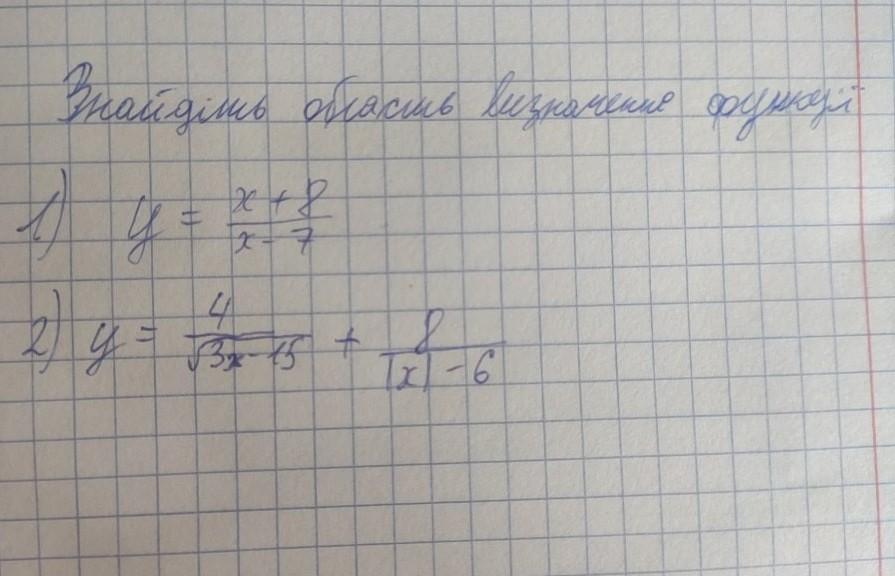 Знайдіть область визначення функції
1) y = \frac{x+8}{x-7}
2) y = \frac{4}{\sqrt{3x-15}} + \frac{8}{|x|-6}